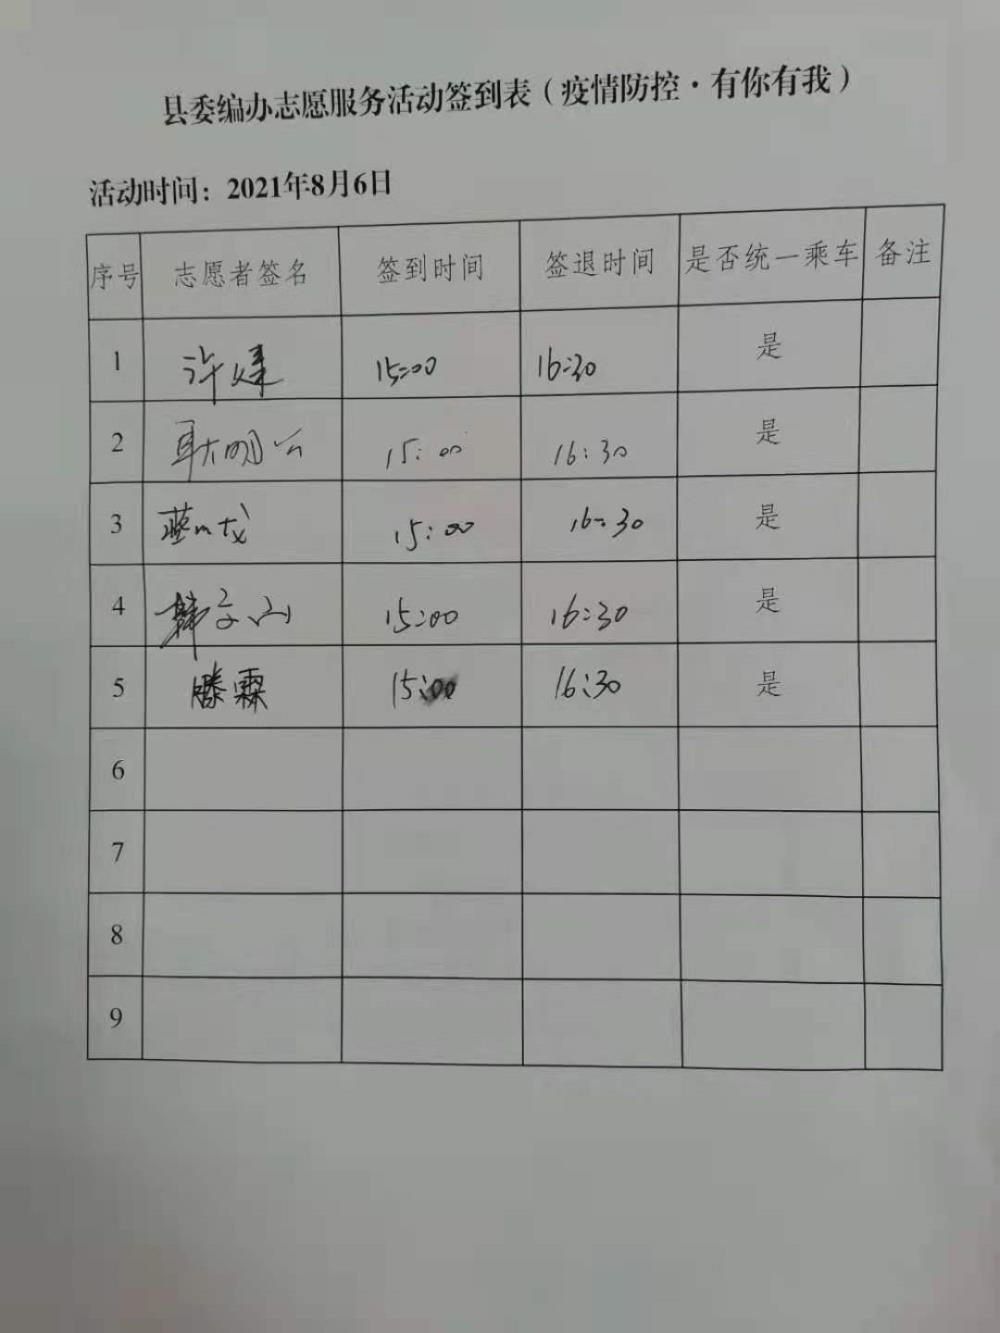 县委编办志愿服务活动签到表（疫情防控·有你有我）
活动时间：2021年8月6日
序号 志愿者签名 签到时间 签退时间 是否统一乘车 备注
1 许建 15:00 16:30 是
2 15:00 16:30 是
3 15:00 16:30 是
4 韩子山 15:00 16:30 是
5 滕霖 15:00 16:30 是
6
7
8
9